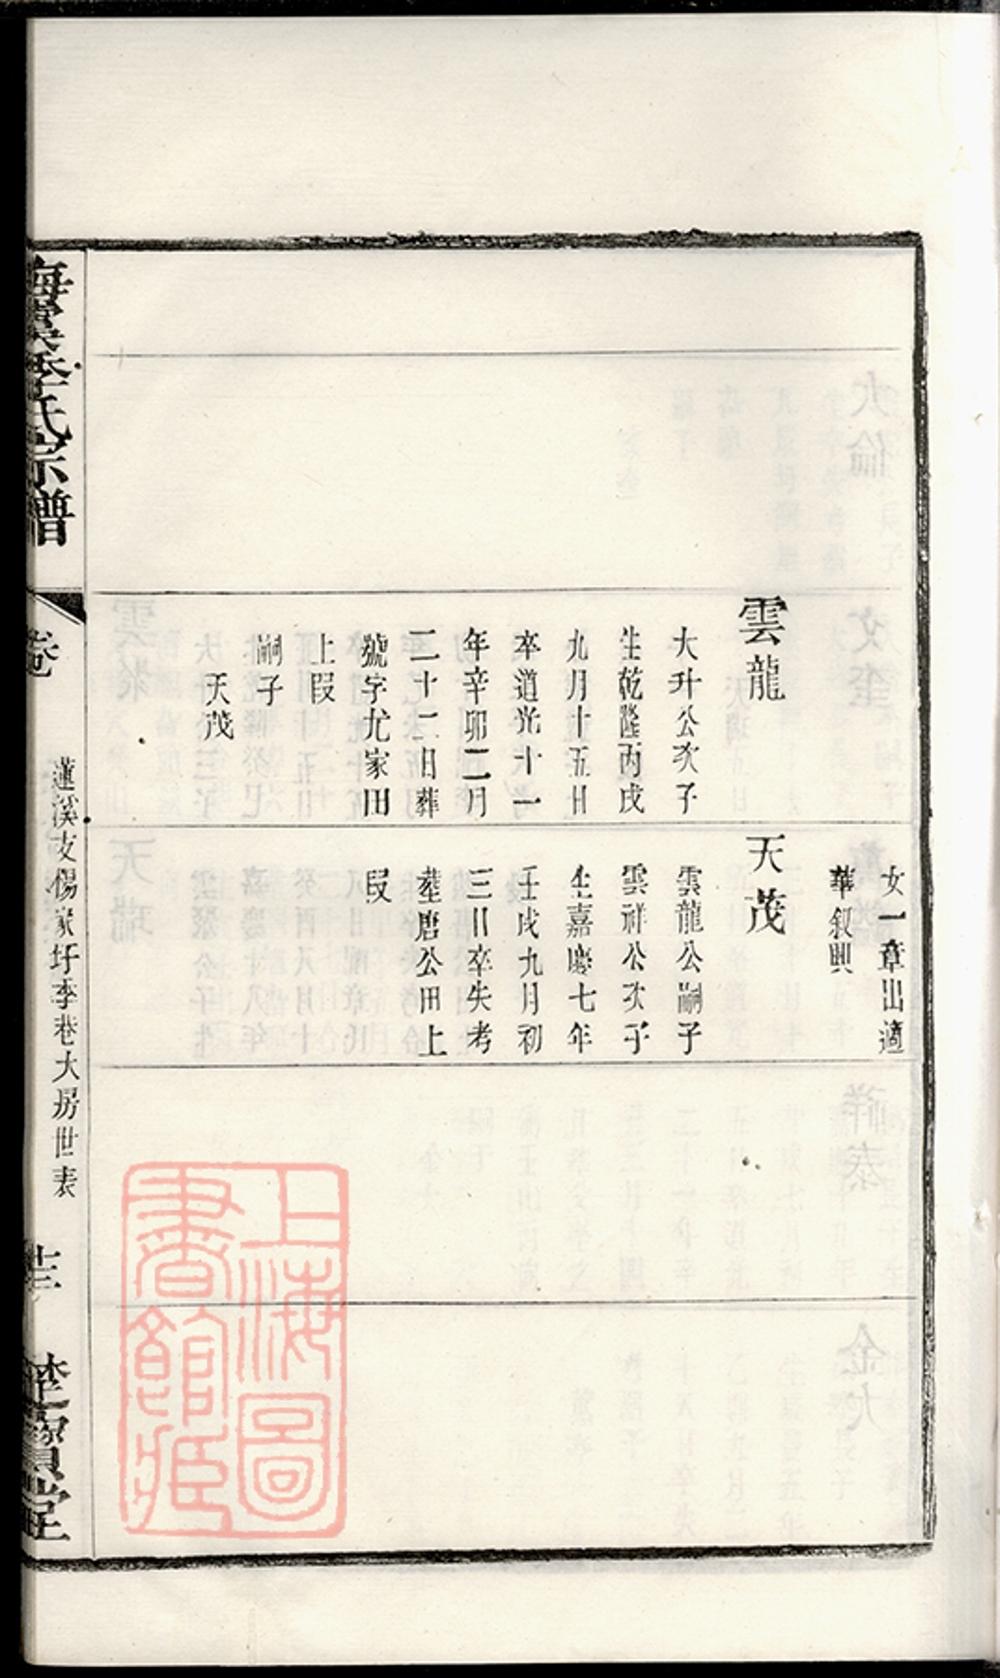 雲龍
大升公次子
生乾隆丙戌
九月十五日
卒道光十一
年辛卯二月
二十二日葬
號字尤家田
上叚
嗣子
天茂
女一章出適
華叙興
天茂
雲龍公嗣子
雲祥公次子
生嘉慶七年
壬戌九月初
三日卒失考
塟唐公田上
叚
李氏宗譜
卷
蓮溪支楊家圩李巷大房世表
堂
上海圖
書館藏